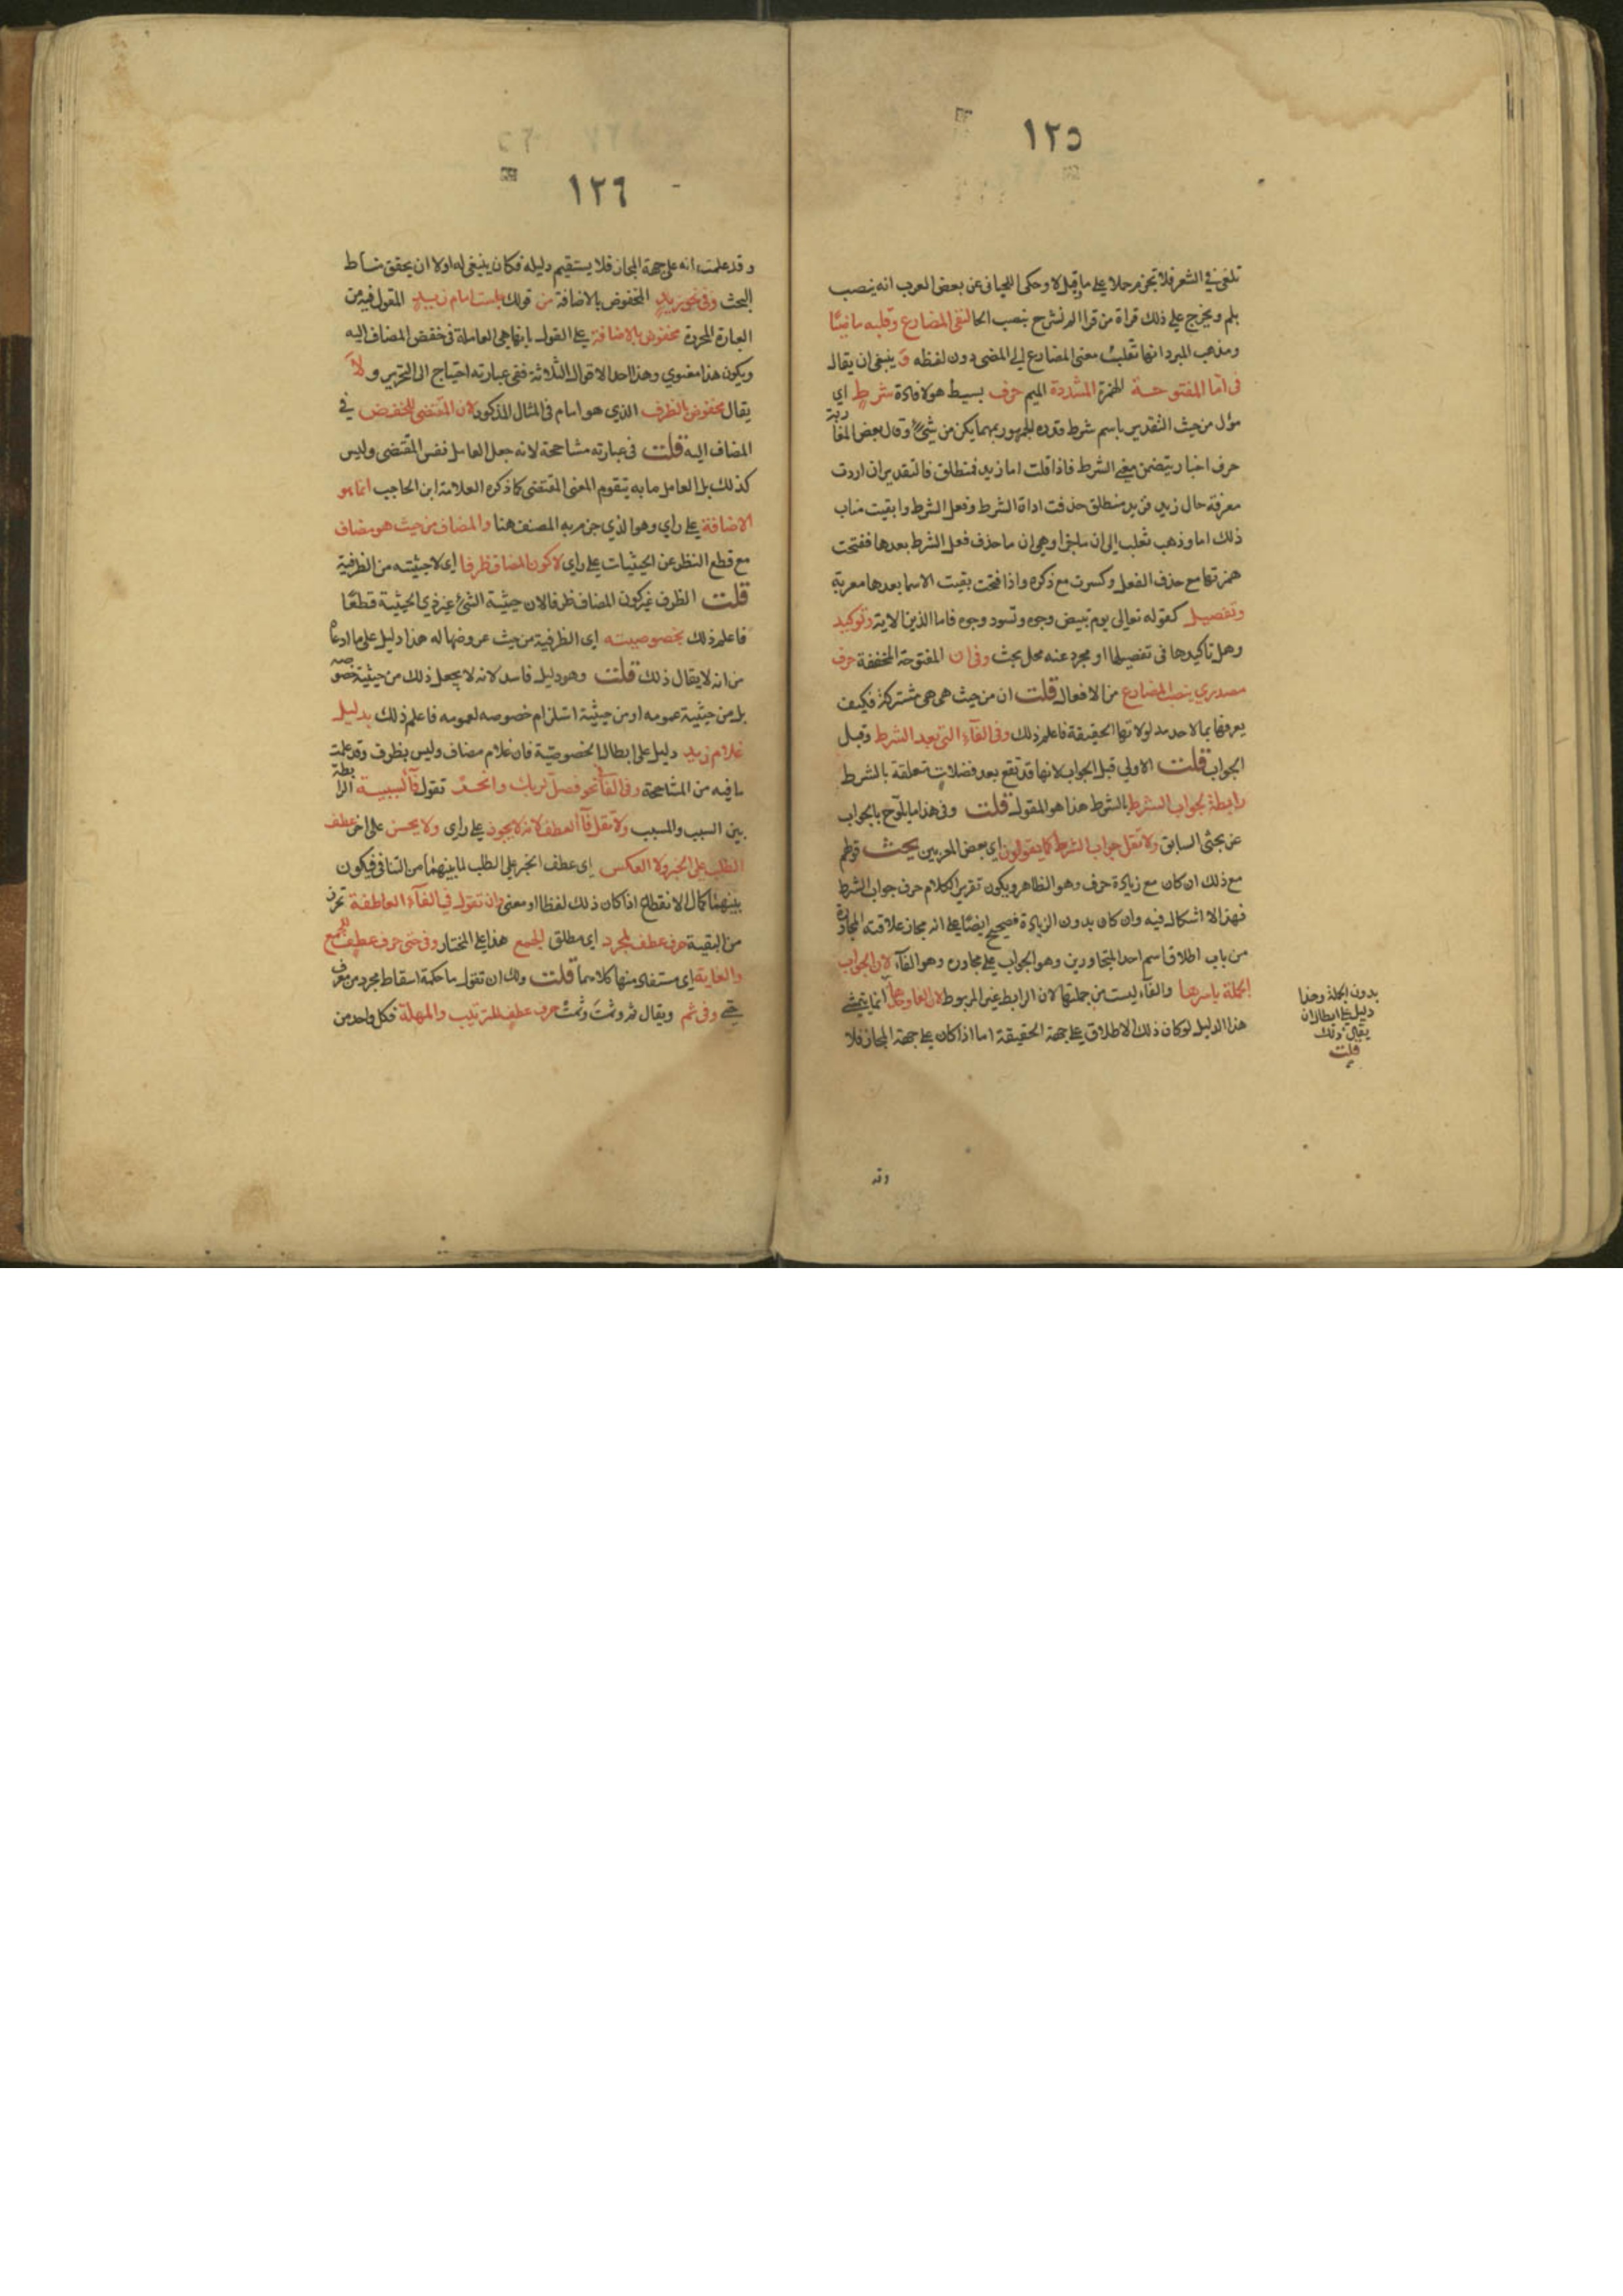 ١٢٥
تلغى في الشعر فلا تجزم حملا على ما وقيل لا وحكى اللحياني عن بعض العرب انه ينصب
بلم ويخرج على ذلك قراة من قرا الم نشرح بنصب الحا لنفى المضارع وقلبه ماضيًا
ومذهب المبرد انها تقلب معنى المضارع الى المضى دون لفظه و ينبغى ان يقال
فى امّا المفتوحة الهمزة المشددة الميم حرف بسيط هو لافادة شرط اي
مؤل من حيث التقدير باسم شرط وقدره الجمهور بمهما يكن من شئ وقال بعض المغاربة
حرف اخبار يتضمن معنى الشرط فاذا قلت اما زيد فمنطلق فالتقدير ان اردت
معرفة حال زيد فزيد منطلق حذفت اداة الشرط وفعل الشرط وابقيت مناب
ذلك اما وذهب ثعلب الى ان اوهى ان ما حذف فعل الشرط بعدها ففتحت
همزتها مع حذف الفعل وكسرت مع ذكره واذا فتحت بقيت الاسما بعدها معربة
وتفصيل كقوله تعالى يوم تبيض وجوه وتسود وجوه فاما الذين الاية وتوكيد
وهل تاكيدها فى تفصيلها او مجرد عنه محل بحث وفى ان المفتوحة المخففة حرف
مصدري ينصب المضارع من الافعال قلت ان من حيث هى هى مشتركة فكيف
يعرفها بما لاحد مدلولاتها الحقيقة فاعلم ذلك وفى الفآء التى بعد الشرط وقبل
الجواب قلت الاولي قبل الجواب لانها قد تقع بعد فضلات متعلقة بالشرط
رابطة لجواب الشرط بالشرط هذا هو المقول قلت وفى هذا ما يلوّح بالجواب
عن بحثى السابق ولا تقل جواب الشرط كما يقولون اي بعض المعربين بحث قولهم
مع ذلك ان كان مع زيادة حرف وهو الظاهر ويكون تقرير الكلام حرف جواب الشرط
فهذا لا اشكال فيه وان كان بدون الزيادة فصحيح ايضًا على انه مجاز علاقته المجاورة
من باب اطلاق اسم احد المتجاورين وهو الجواب على مجاوره وهو الفآء لان الجواب
الجملة باسرها والفآء ليست من جملتها لان الرابط غير المربوط انما يتمشى
هذا الدليل لو كان ذلك الاطلاق على جهة الحقيقة اما اذا كان على جهة المجاز فلا
بدون الجملة وهذا
دليل على ابطال ان
يقال ذلك
قلت
وقد
١٢٦
وقد علمت انه على جهة المجاز فلا يستقيم دليله فكان ينبغى له اولا ان يحقق مناط
البحث وفى نحو زيد المخفوض بالاضافة من قولك جلست امام زيد المقول فيه من
العبارة المحررة مخفوض بالاضافة على القول بانها هى العاملة فى خفض المضاف اليه
ويكون هذا معنوي وهذا احد الاقوال الثلاثة ففى عبارته احتياج الى التحرير ولا
يقال مخفوض بالظرف الذي هو امام فى المثال المذكور لان المقتضى للخفض في
المضاف اليه قلت فى عبارته مشاححة لانه جعل العامل نفس المقتضى وليس
كذلك بل العامل ما به يتقوم المعنى المقتضى كما ذكره العلامة ابن الحاجب انما هو
الاضافة على راي وهو الذي جزم به المصنف هنا والمضاف من حيث هو مضاف
مع قطع النظر عن الحيثيات على راي لا كون المضاف ظرفا اى لا حيثيته من الظرفية
قلت الظرف غير كون المضاف ظرفا لان حيثية الشئ غير ذي الحيثية قطعًا
فاعلم ذلك بخصوصيته اى الظرفية من حيث عروضها له هذا دليل على ما ادعاه
من انه لا يقال ذلك قلت وهو دليل فاسد لانه لا يجعل ذلك من حيثية خصوصه
بل من حيثية عمومه او من حيثية استلزام خصوصه لعمومه فاعلم ذلك بدليل
غلام زيد دليل على ابطال الخصوصية فان غلام مضاف وليس بظرف وقد علمت
ما فيه من المشاححة وفى الفآ نحو فصلّ لربك وانحر تقول فآ السببية الرابطة
بين السبب والمسبب ولا تقل فآ العطف لانه لا يجوز على راى ولا يحسن على اخر عطف
الطلب على الخبر ولا العكس اى عطف الخبر على الطلب لما بينهما من التنافى فيكون
بينهما كمال الانقطاع اذا كان ذلك لفظا او معنى وان تقول فى الفآء العاطفة
من البقية حرف عطف لمجرد اي مطلق الجمع هذا على المختار وفى حتى حرف عطف للجمع
والغاية اى مستفاد منها كلاهما قلت ولك ان تقول ما حكمة اسقاط مجرد من
حتى وفى ثم ويقال فم وثمتَ وثمتْ حرف عطف للترتيب والمهلة فكل واحد من